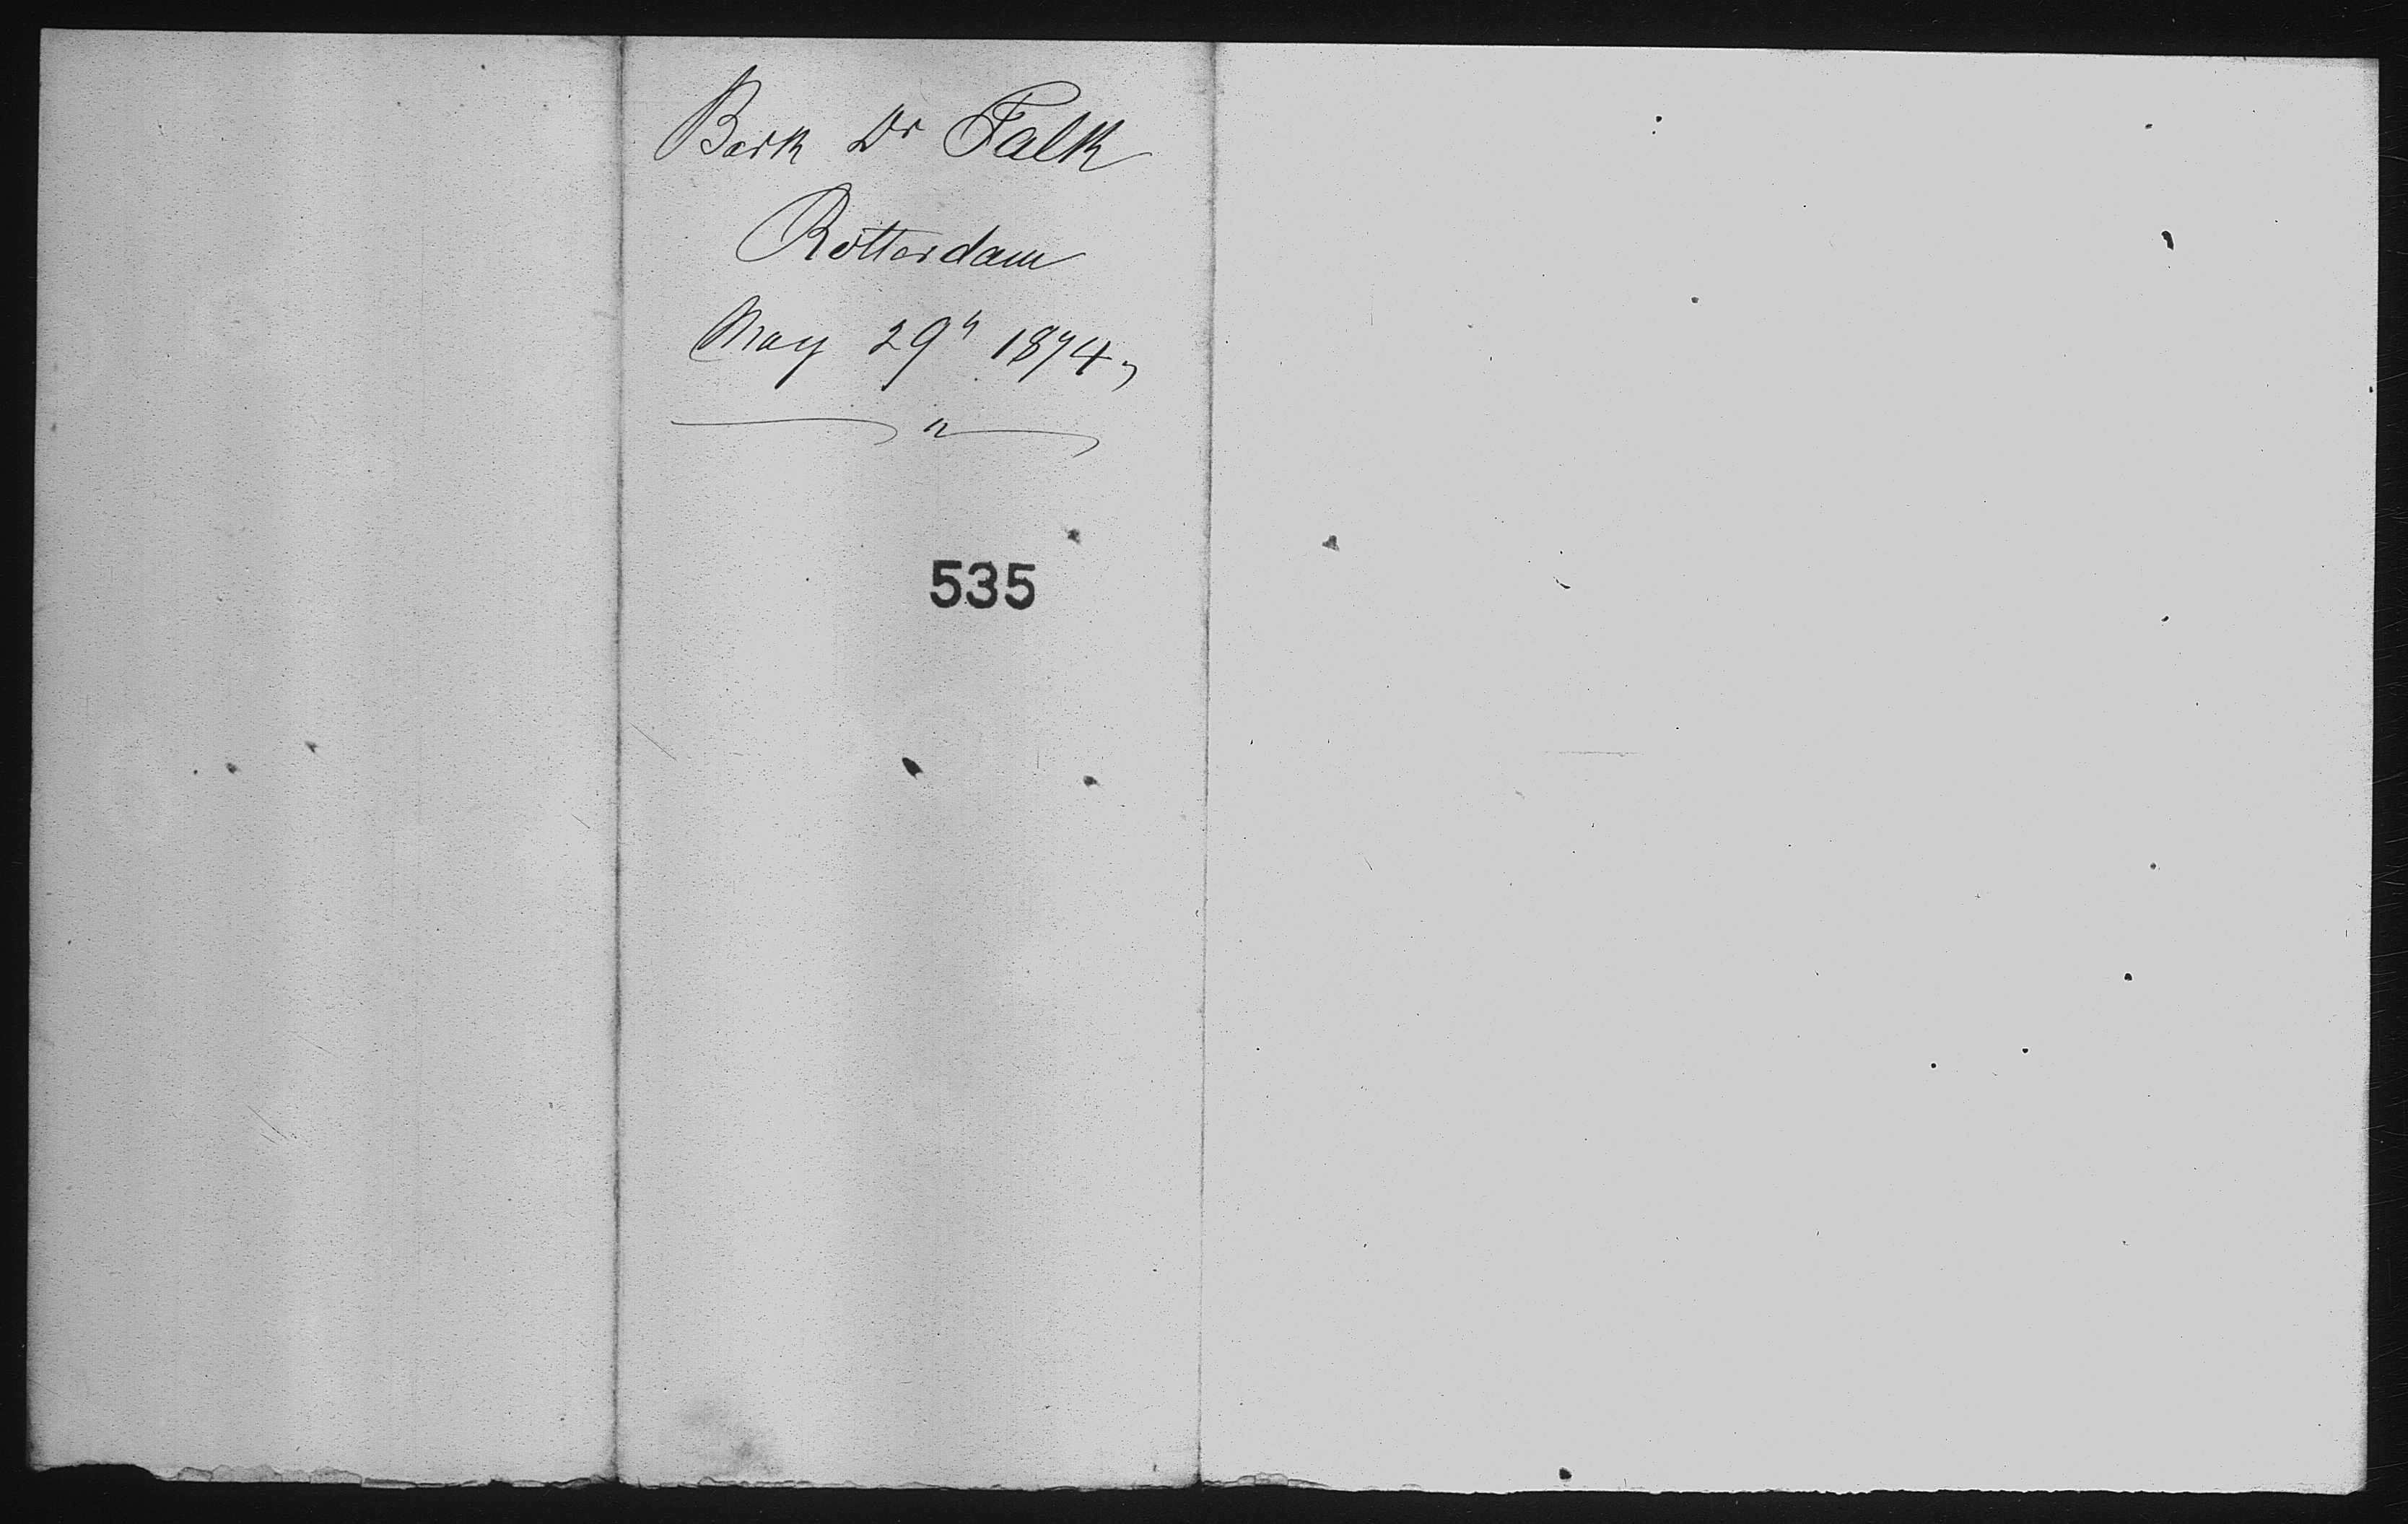 Bark Dr Falk
Rotterdam
May 29th 1874
535